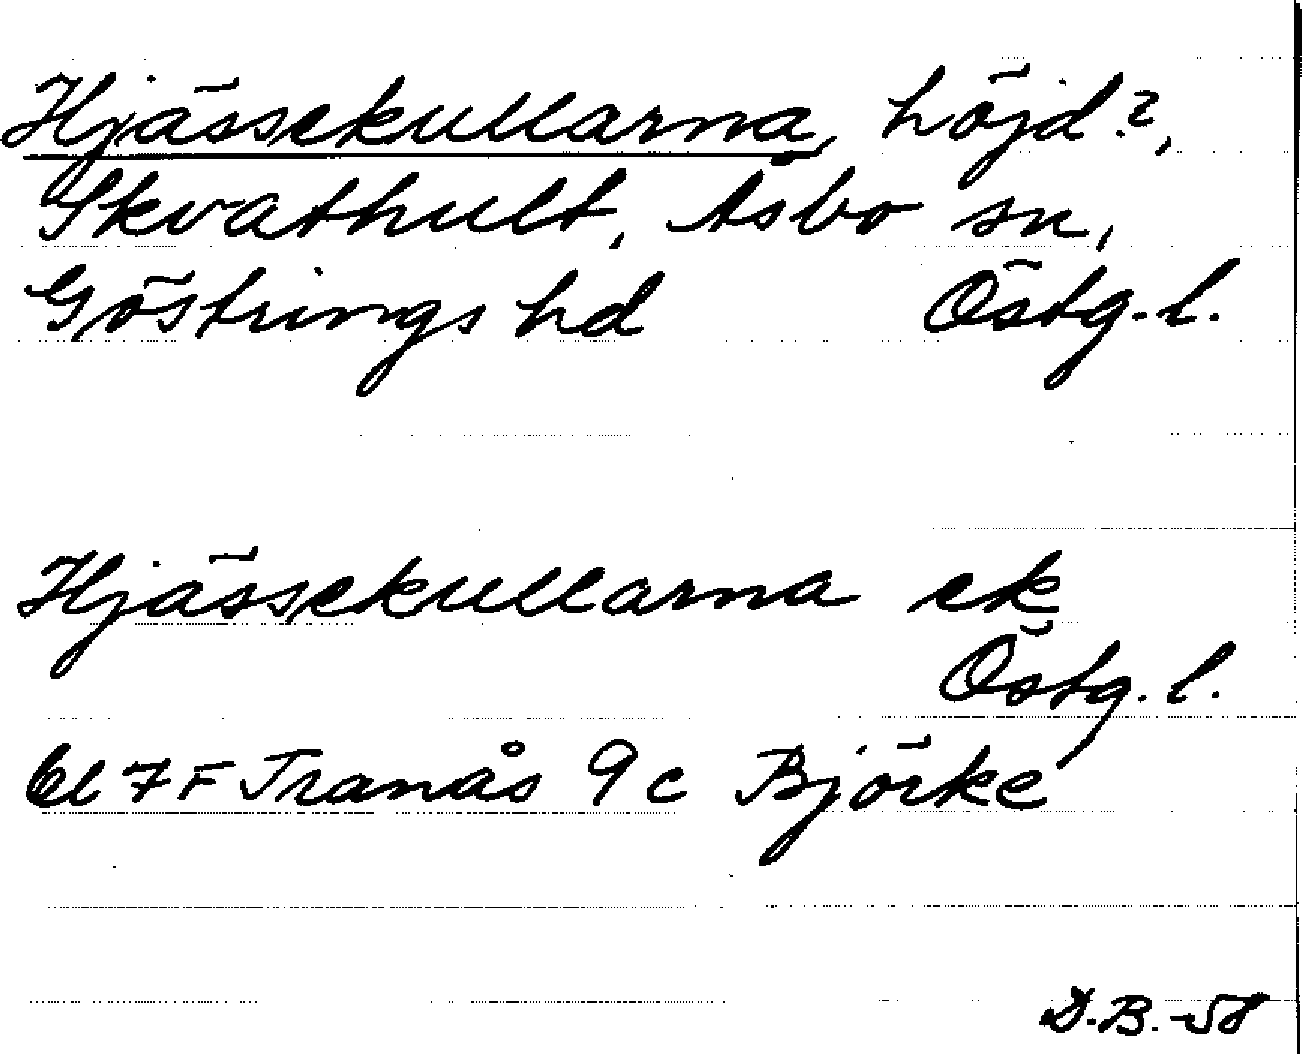 Hjässekullarna, höjd?,
Skvathult, Åsbo sn,
Göstrings hd Östg. l.
Hjässekullarna ek
Östg. l.
bl 7 F Tranås 9 c Björke
D.B. -58